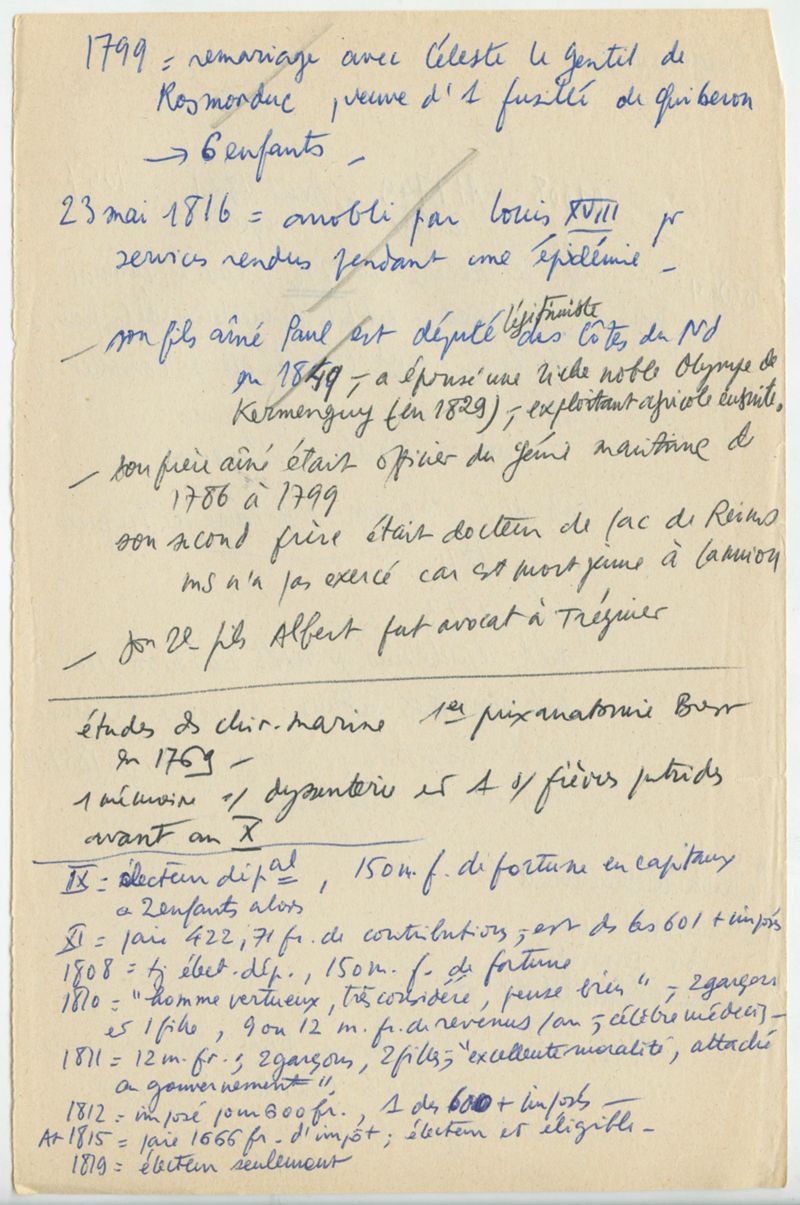 1799 = remariage avec Céleste le Gentil de
Rosmorduc, veuve d'1 fusillé de Quiberon
→ 6 enfants –
23 mai 1816 = anobli par Louis XVIII pr
services rendus pendant une épidémie –
légitimiste
– son fils aîné Paul est député des Côtes du Nd
en 1849 –, a épousé une riche noble Olympe de
Kermenguy (en 1829) –, exploitant agricole ensuite.
– son frère aîné était officier du génie maritime de
1786 à 1799
son second frère était docteur de fac de Reims
ms n'a pas exercé car est mort jeune à Lannion
– son 2e fils Albert fut avocat à Tréguier
études ds chir. marine 1er prix anatomie Brest
en 1769 –
1 mémoire s/ dysenterie et 1 s/ fièvres putrides
avant an X
IX = électeur dép.al, 150 m. f. de fortune en capitaux
a 2 enfants alors
XI = paie 422,71 fr. de contributions –, est ds les 601 + imposés
1808 = tj élect. dép., 150 m. f. de fortune
1810 = "homme vertueux, très considéré, pense bien" –, 2 garçons
et 1 fille, 9 ou 12 m. fr. de revenus/an –, célèbre médecin –
1811 = 12 m. fr. –, 2 garçons, 2 filles –, "excellente moralité, attaché
au gouvernement",
1812 = imposé pour 600 fr., 1 des 600 + imposés –
At 1815 = paie 1666 fr. d'impôt ; électeur et éligible –
1819 = électeur seulement